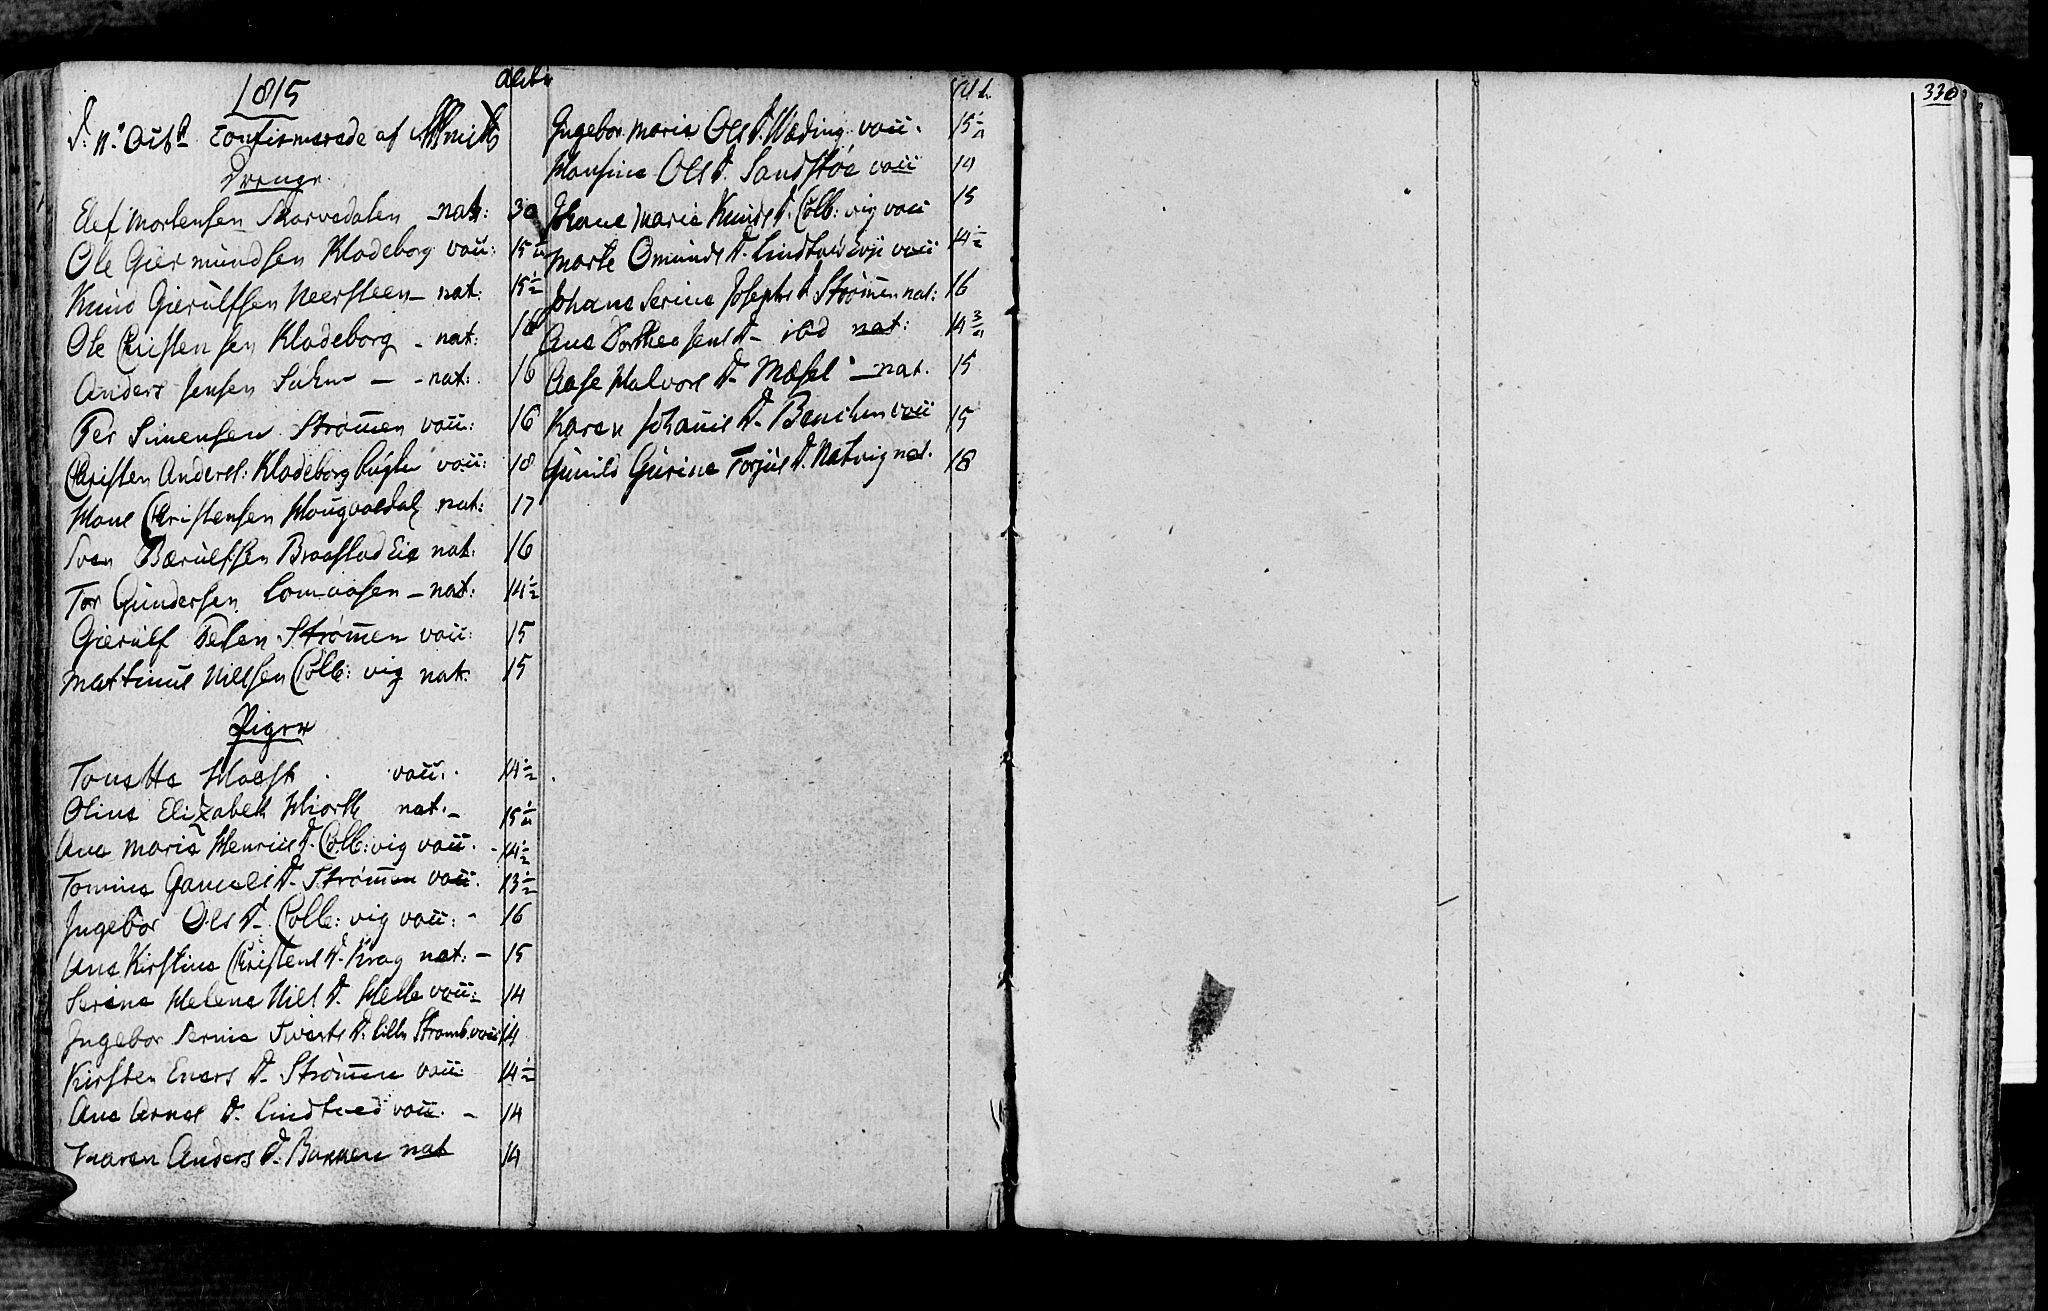 1815
Confirmerede af
Drenge
Elef Mortensen Skarvedalen nat: 30
Ole Giermundsen Klodeborg vau: 15
Knud Gierulfsen Neersteen nat: 15 1/2
Ole Christensen Klodeborg - nat: 16
Anders Jensen - - nat: 16
Per Simensen Strømen vau: 16
Christen Anders: Klodeborg vau: 18
Hans Christensen Hougvaldal nat: 17
Sven Bærulfsen Braastad Eie nat: 16
Tor Gundersen Lomaasen - nat: 14 1/2
Gierulf Strømen vau: 15
Mattinus Nielsen Colb: vig nat. 15
Piger
Tonette vau: 14 1/2
Oline Elizabeth Hiorth nat. 15
Ane Maria Henrics D. Colb: vig vau. 14 1/2
Tomine Gamels D. Strømen vau. 13 1/2
Ingebor Ols D. Colb: vig vau: - 16
Ane Kirstine Christens D. Krag nat: - 15
Serine Helene Niels D. Helle vau: 14
Ingebor D: Lille Stromb. vau 14
Kirsten Evers D. Strømen vau: 14 1/2
Ane Arnes D. Lindtved vau. - 14
Maren Anders D. Bakken nat 14
Alt.
Ingebor Marie Ols D. vau. 15
Monsine Ols D. Sandstøe vau 14
Johane Marie Knuds D. Colb: vig vau 15
Marte Omunds D. vau 14 1/2
Johane Serine Josephs D. Strømen nat: 16
Ane Dorthea Jens D. ibd nat: 14 3/4
Aase Halvors D. Mæsel - nat. 15
Karen Johanis D. vau 15
Gunild Gurine Torjus D. Natvig nat. 18
330